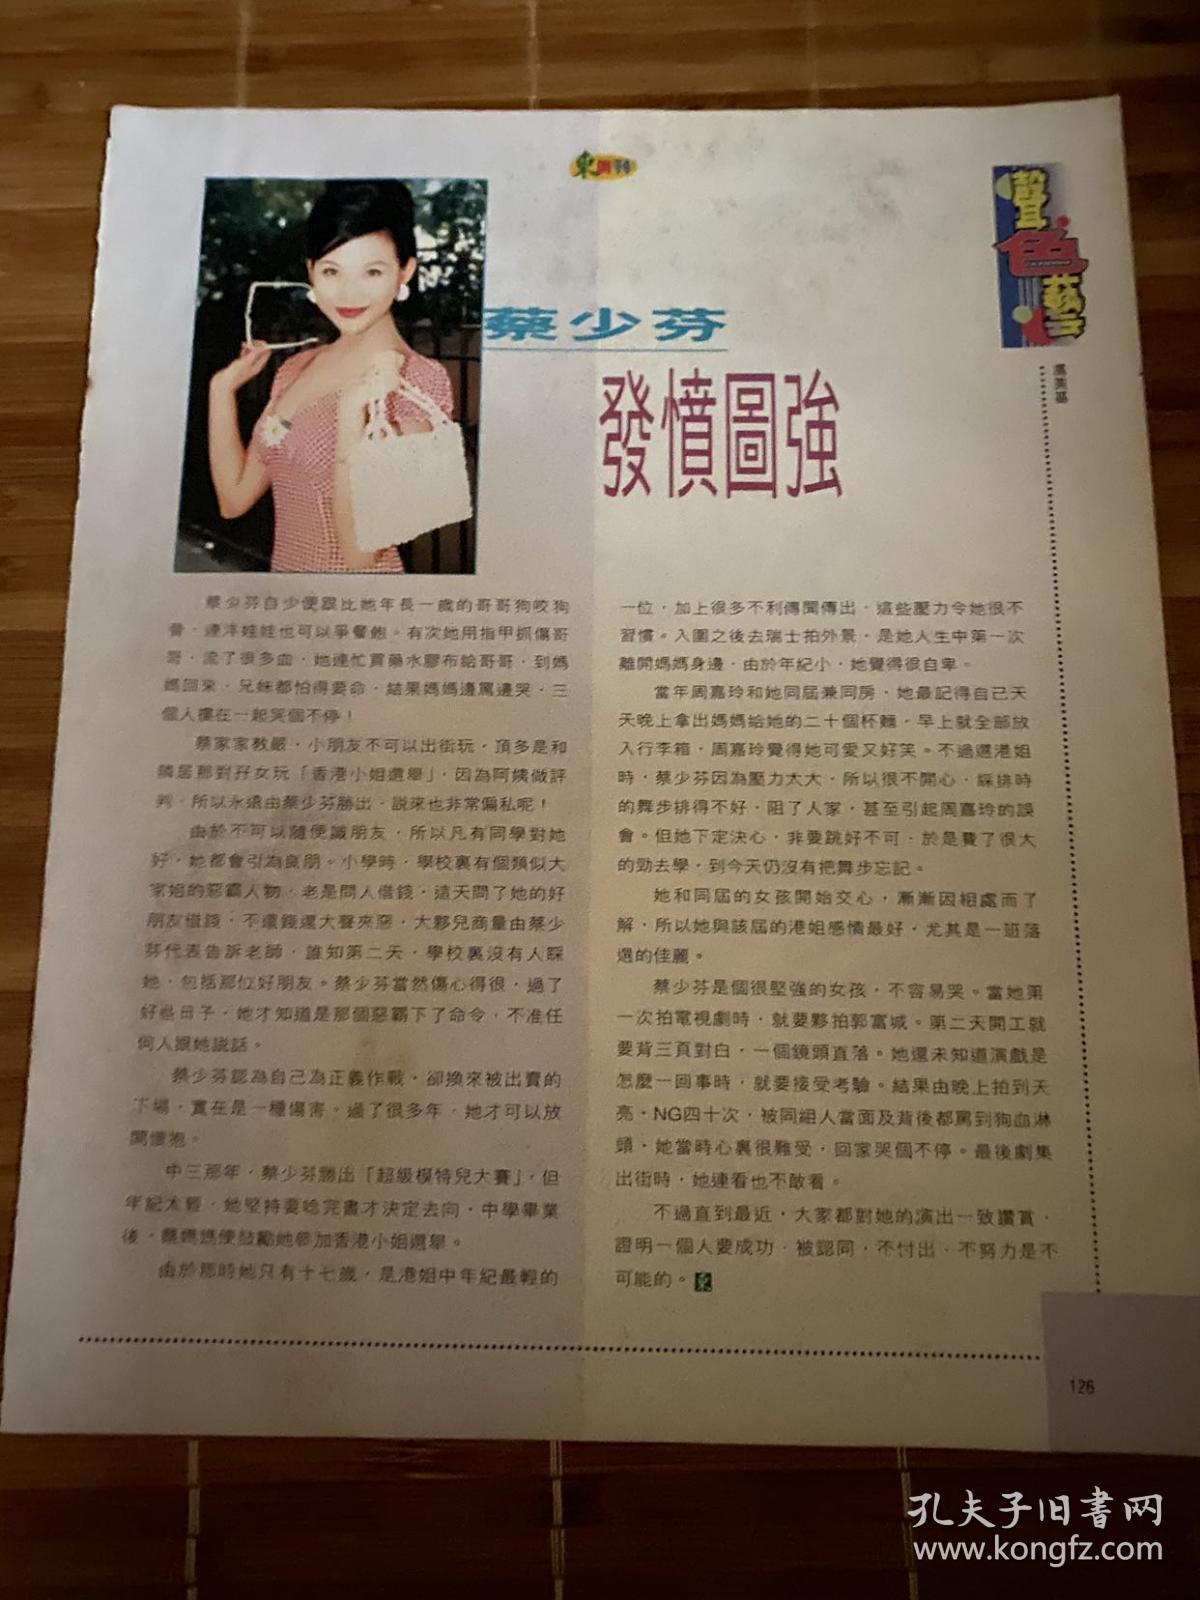 東周刊
聲色藝
蔡少芬
發憤圖強
蔡少芬自少便跟比她年長一歲的哥哥狗咬狗
骨，連洋娃娃也可以爭餐飽。有次她用指甲抓傷哥
哥，流了很多血，她連忙買藥水膠布給哥哥，到媽
媽回來，兄妹都怕得要命，結果媽媽邊罵邊哭，三
個人摟在一起哭個不停！
蔡家家教嚴，小朋友不可以出街玩，頂多是和
隣居那對孖女玩「香港小姐選舉」，因為阿姨做評
判，所以永遠由蔡少芬勝出，説來也非常偏私呢！
由於不可以隨便識朋友，所以凡有同學對她
好，她都會引為良朋。小學時，學校裏有個類似大
家姐的惡霸人物，老是問人借錢，這天問了她的好
朋友借錢，不還錢還大聲夾惡，大夥兒商量由蔡少
芬代表告訴老師，誰知第二天，學校裏沒有人睬
她，包括那位好朋友。蔡少芬當然傷心得很，過了
好些日子，她才知道是那個惡霸下了命令，不准任
何人跟她説話。
蔡少芬認為自己為正義作戰，卻換來被出賣的
下場，實在是一種傷害。過了很多年，她才可以放
開懷抱。
中三那年，蔡少芬勝出「超級模特兒大賽」，但
年紀太輕，她堅持要唸完書才決定去向，中學畢業
後，蔡媽媽便鼓勵她參加香港小姐選舉。
由於那時她只有十七歲，是港姐中年紀最輕的
一位，加上很多不利傳聞傳出，這些壓力令她很不
習慣。入圍之後去瑞士拍外景，是她人生中第一次
離開媽媽身邊，由於年紀小，她覺得很自卑。
當年周嘉玲和她同屆兼同房，她最記得自己天
天晚上拿出媽媽給她的二十個杯麵，早上就全部放
入行李箱，周嘉玲覺得她可愛又好笑。不過選港姐
時，蔡少芬因為壓力太大，所以很不開心，綵排時
的舞步排得不好，阻了人家，甚至引起周嘉玲的誤
會。但她下定決心，非要跳好不可，於是費了很大
的勁去學，到今天仍沒有把舞步忘記。
她和同屆的女孩開始交心，漸漸因相處而了
解，所以她與該屆的港姐感情最好，尤其是一班落
選的佳麗。
蔡少芬是個很堅強的女孩，不容易哭。當她第
一次拍電視劇時，就要夥拍郭富城。第二天開工就
要背三頁對白，一個鏡頭直落。她還未知道演戲是
怎麼一回事時，就要接受考驗。結果由晚上拍到天
亮，NG四十次，被同組人當面及背後都罵到狗血淋
頭，她當時心裏很難受，回家哭個不停。最後劇集
出街時，她連看也不敢看。
不過直到最近，大家都對她的演出一致讚賞，
證明一個人要成功，被認同，不忖出，不努力是不
可能的。東
126
孔夫子旧书网
www.kongfz.com